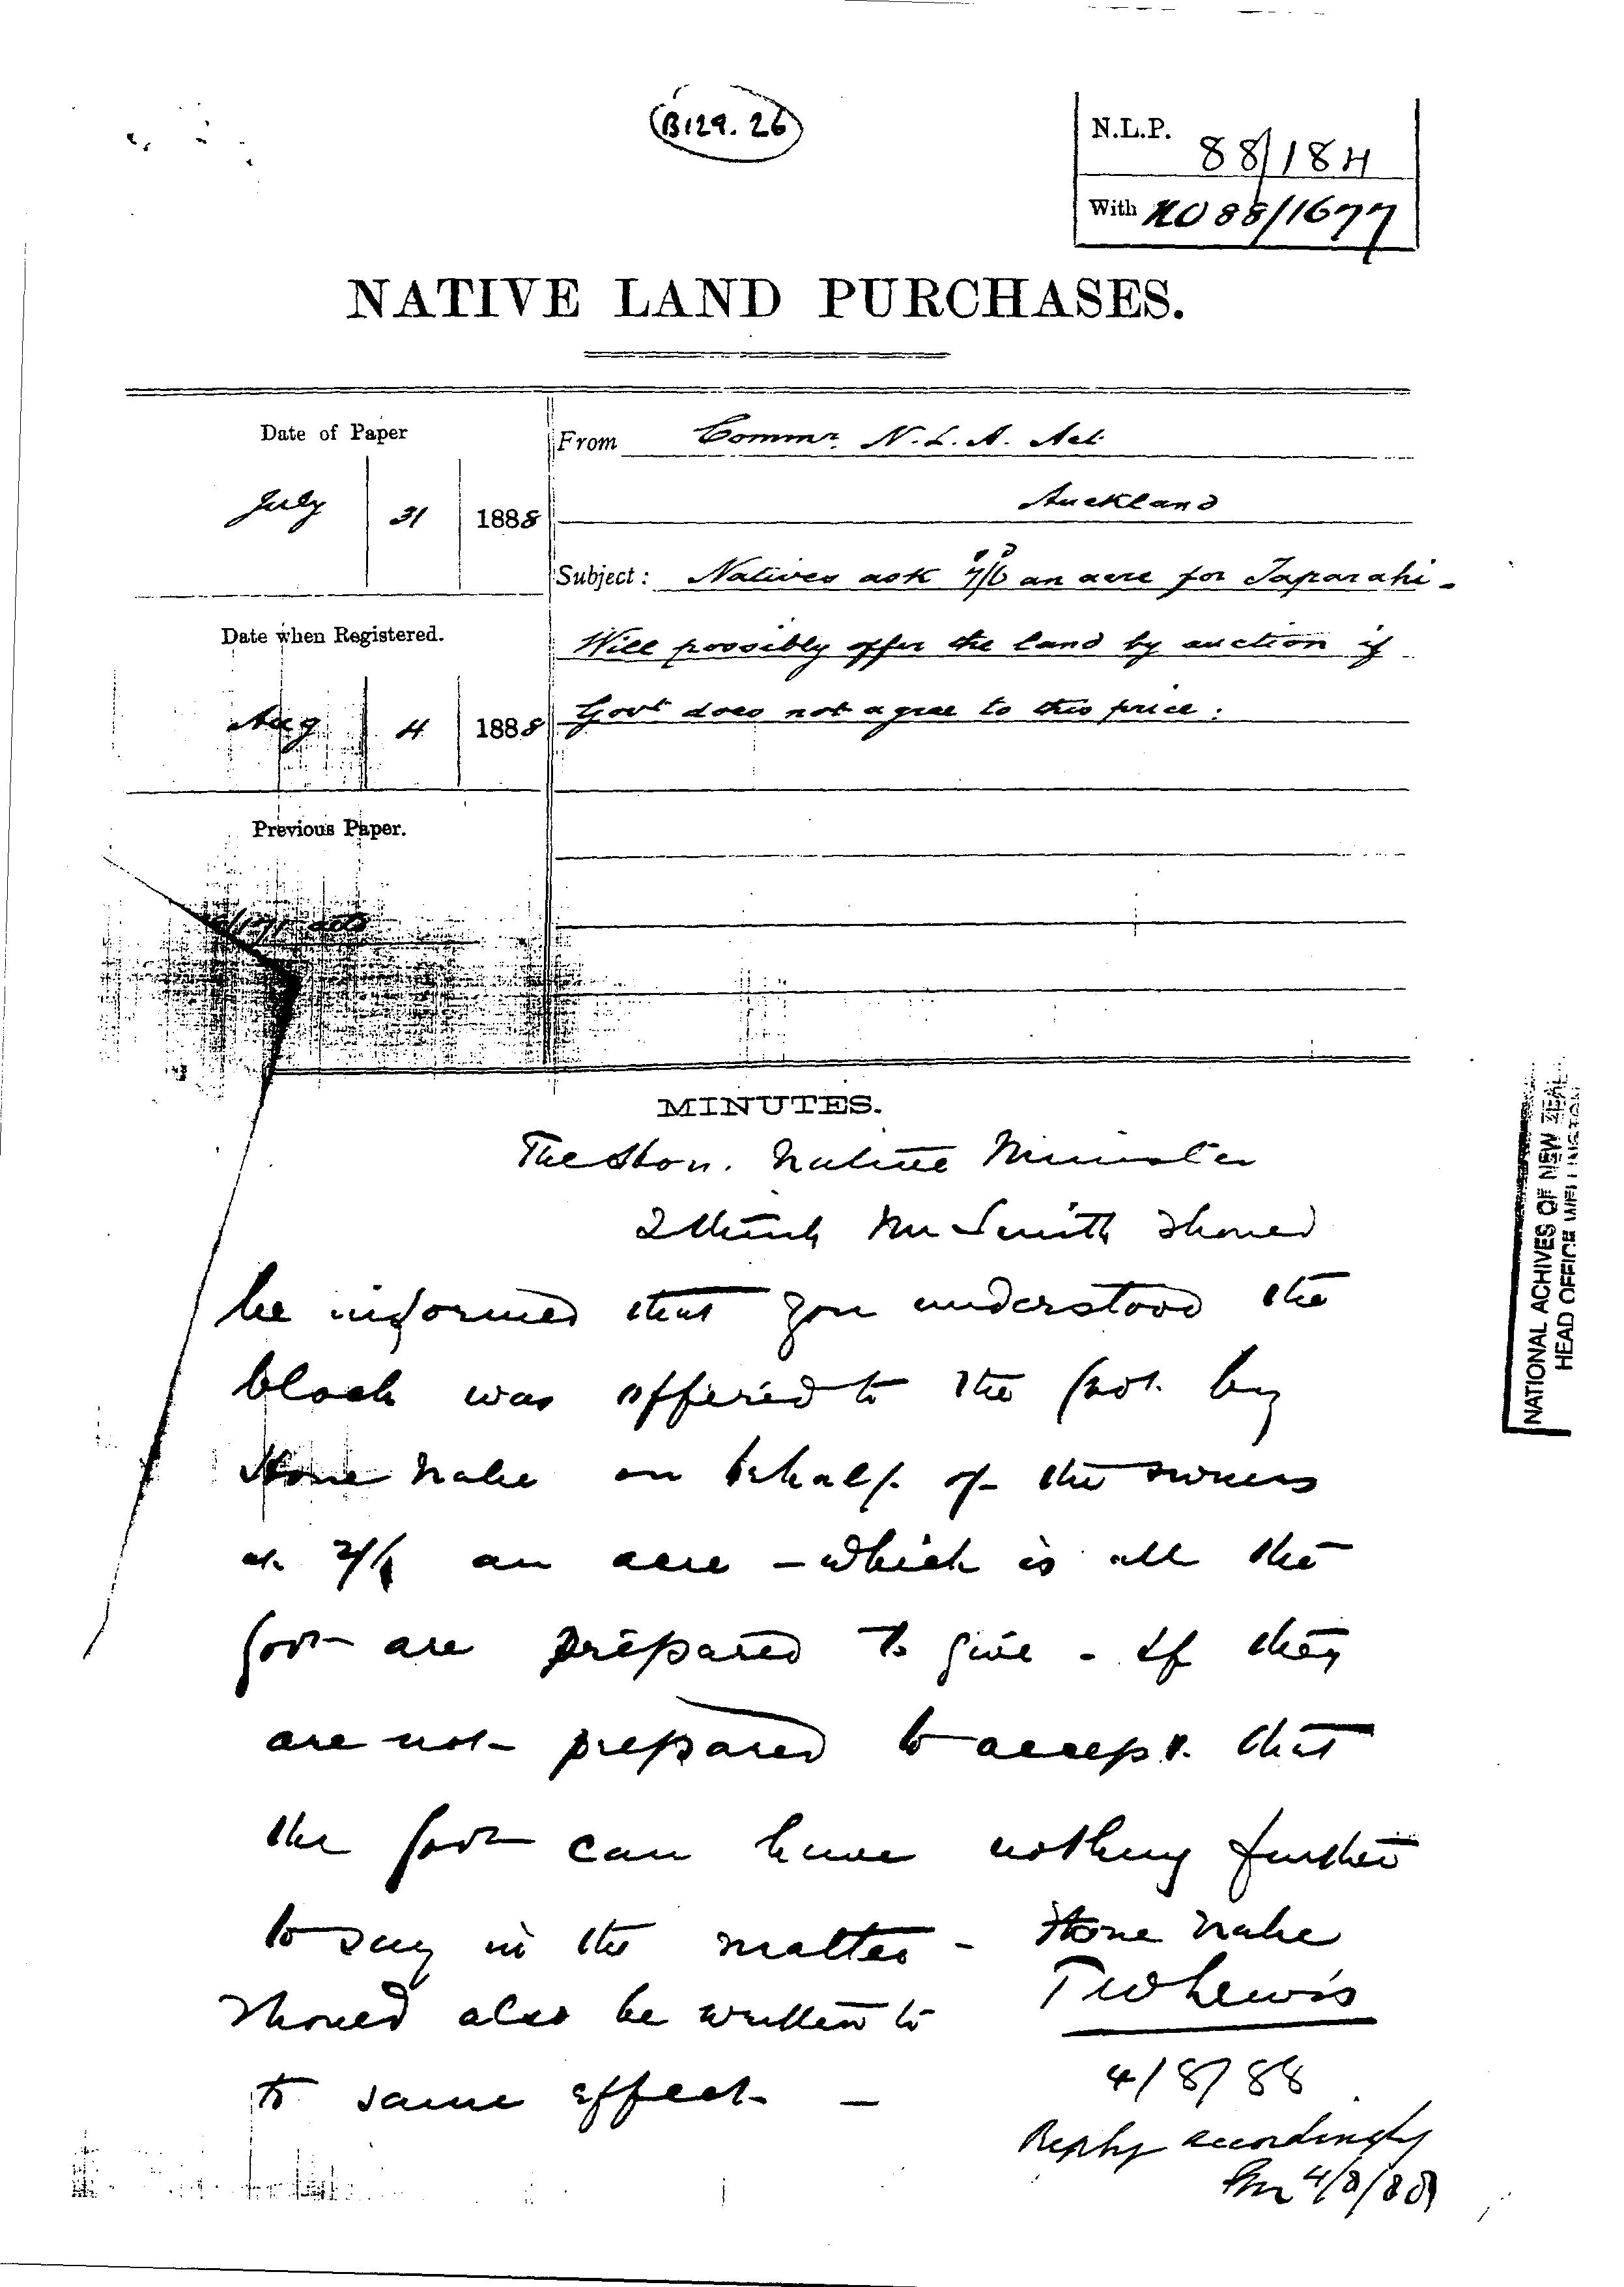 B129.26
N.L.P. 88/184
With NO 88/1677
NATIVE LAND PURCHASES.
Date of Paper
July 31 1888
From Commr. N. L. A. Act
Auckland
Subject: Natives ask 7/6 an acre for Taparahi -
Date when Registered.
Will possibly offer the land by auction if
Aug 4 1888
Govt does not agree to this price.
Previous Paper.
MINUTES.
The Hon. Native Minister
I think Mr Smith should
be informed that you understood the
block was offered to the Govt. by
Hone Nahe on behalf of the owners
at an acre - which is all the
Govt are prepared to give - If they
are not prepared to accept that
the Govt can have nothing further
to say in the matter - Hone Nahe
should also be written to
to same effect -
TW Lewis
4/8/88
Reply accordingly
4/8/88
NATIONAL ACHIVES OF NEW ZEAL
HEAD OFFICE WELLINGTON